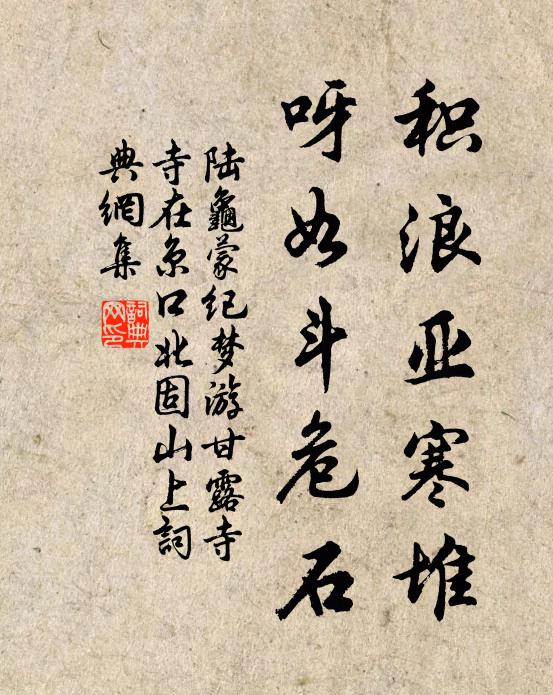 积浪亚寒堆
呀如斗危石
陆龜蒙纪梦游甘露寺
寺在京口北固山上詞
典網集
詞典
网印